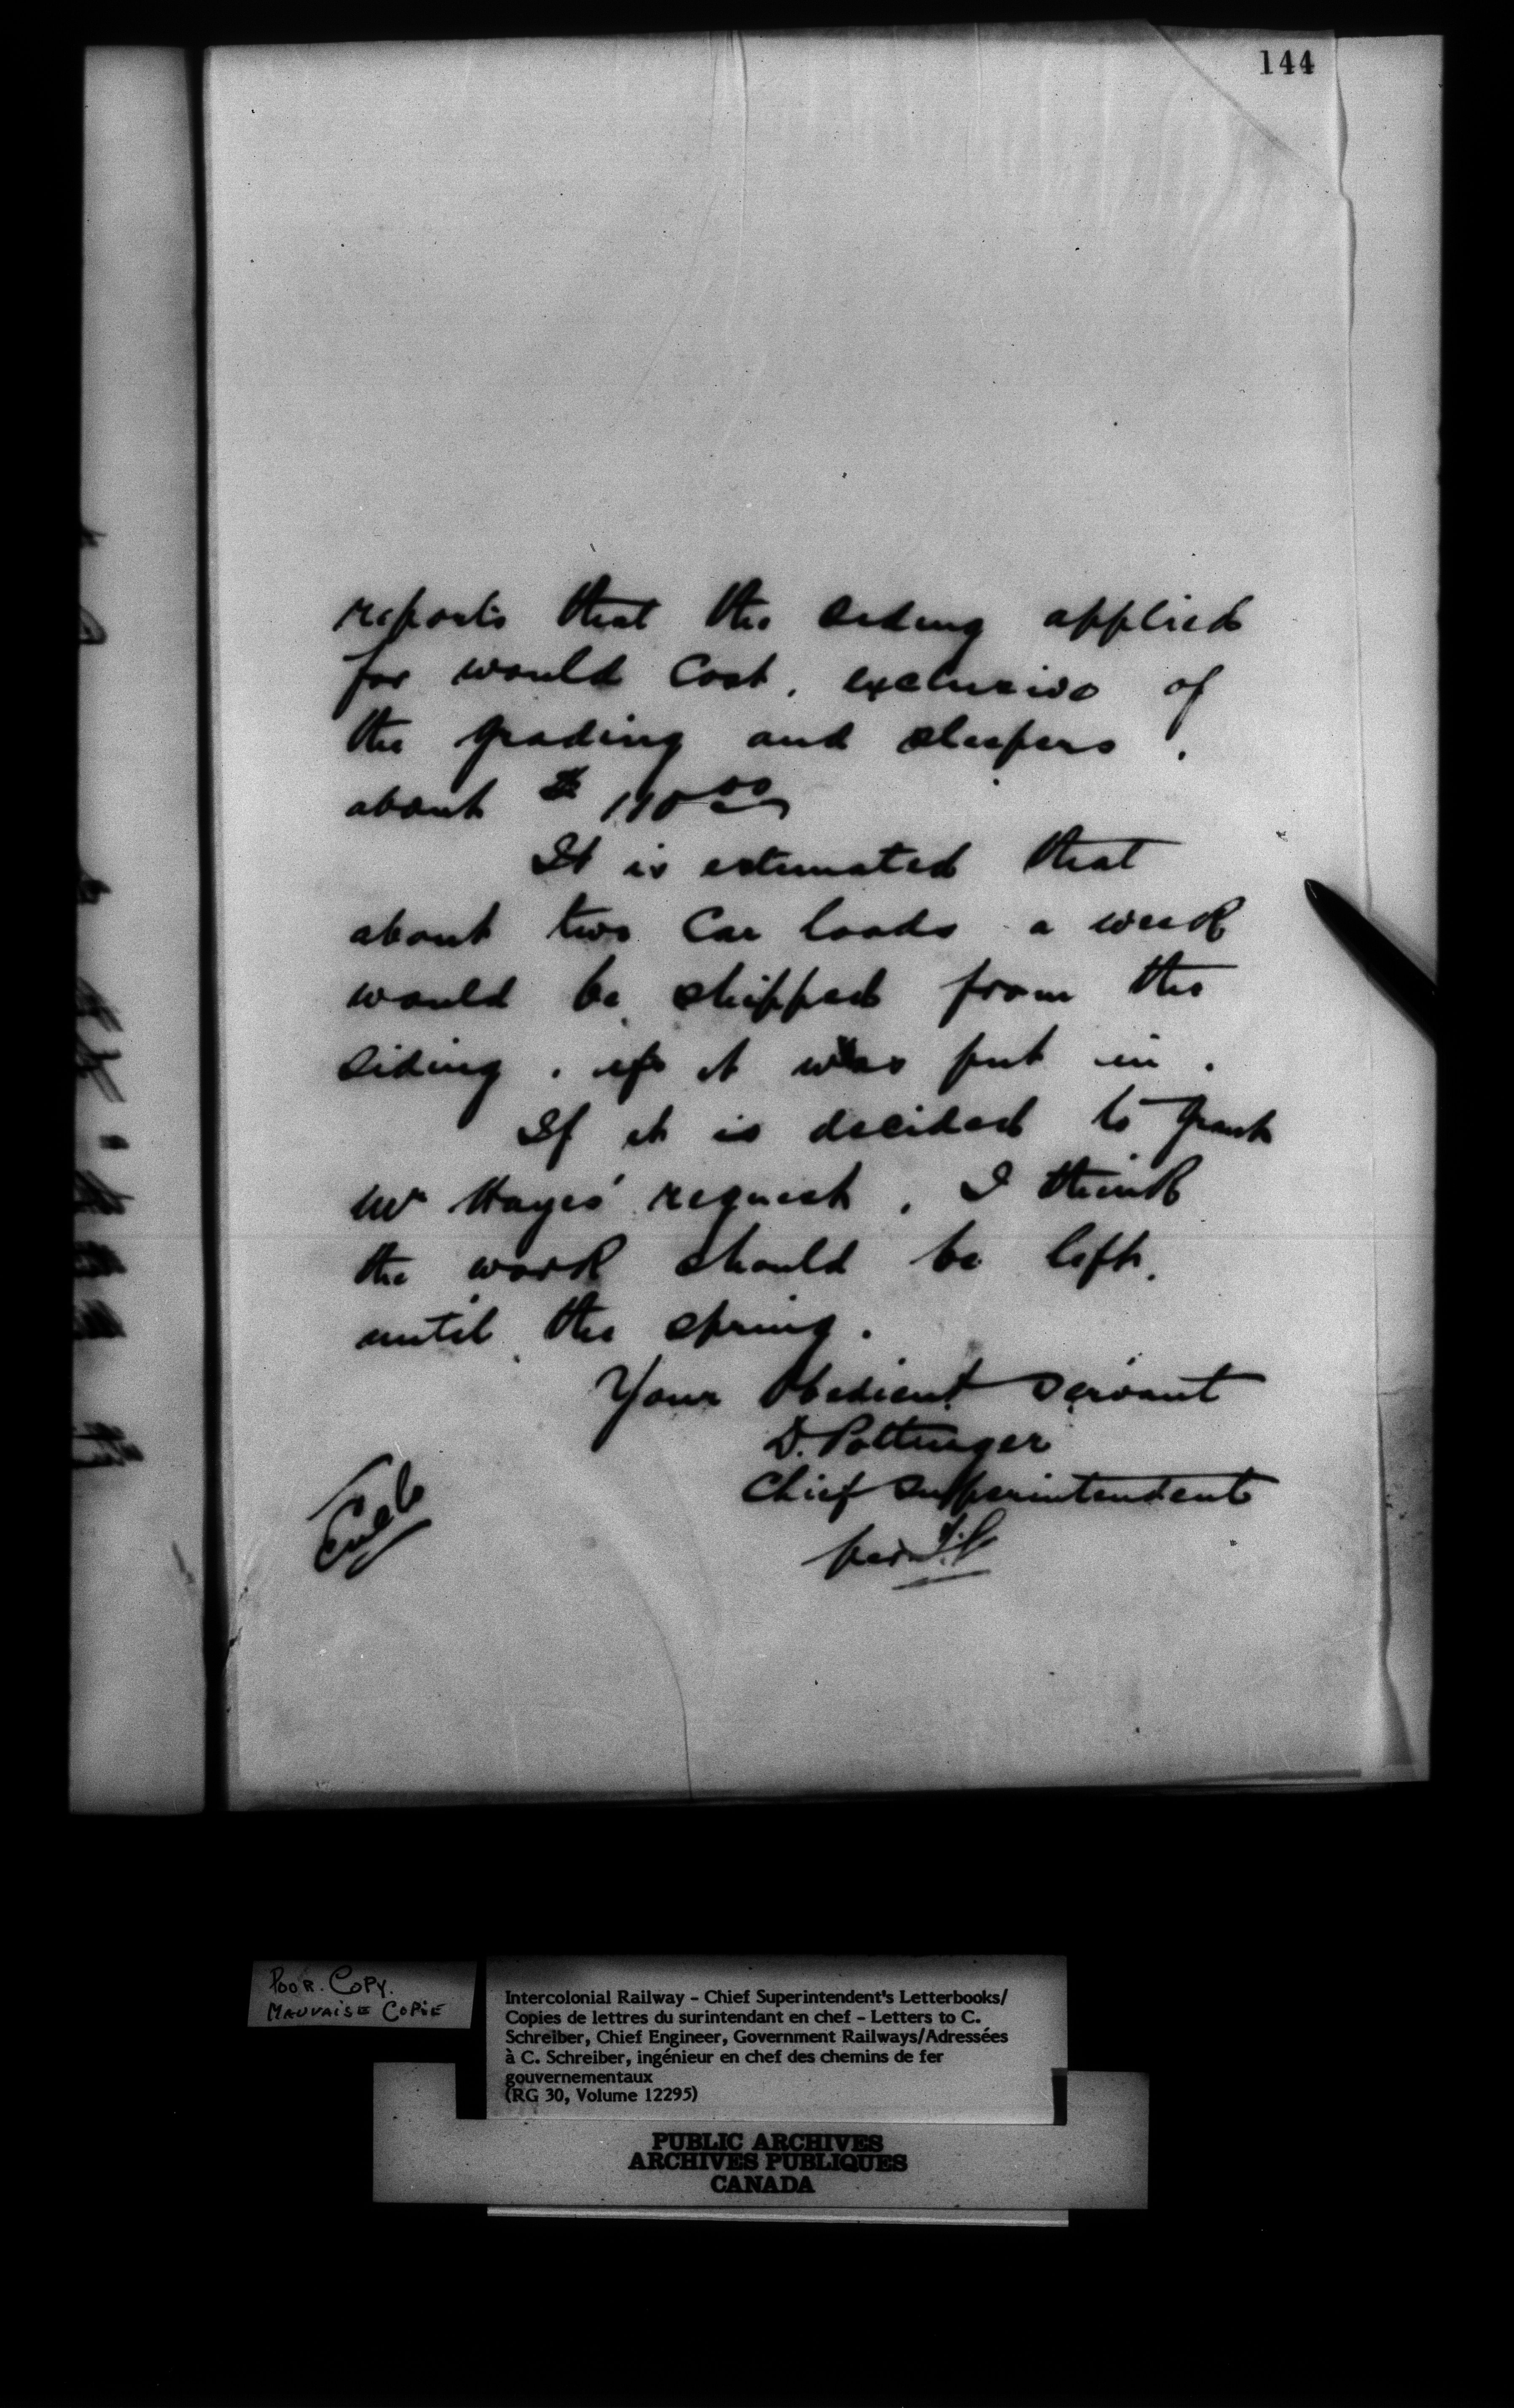 144
reports that the siding applied
for would cost, exclusive of
the grading and sleepers,
about $110 00
It is estimated that
about two Car loads a week
would be shipped from the
siding, if it was put in.
If it is decided to grant
Mr Hayes' request, I think
the work should be left,
until the spring.
Your Obedient Servant
D. Pottinger
Chief Superintendent
per
Encl
POOR. COPY.
MAUVAISE COPIE
Intercolonial Railway – Chief Superintendent's Letterbooks/
Copies de lettres du surintendant en chef – Letters to C.
Schreiber, Chief Engineer, Government Railways/Adressées
à C. Schreiber, ingénieur en chef des chemins de fer
gouvernementaux
(RG 30, Volume 12295)
PUBLIC ARCHIVES
ARCHIVES PUBLIQUES
CANADA